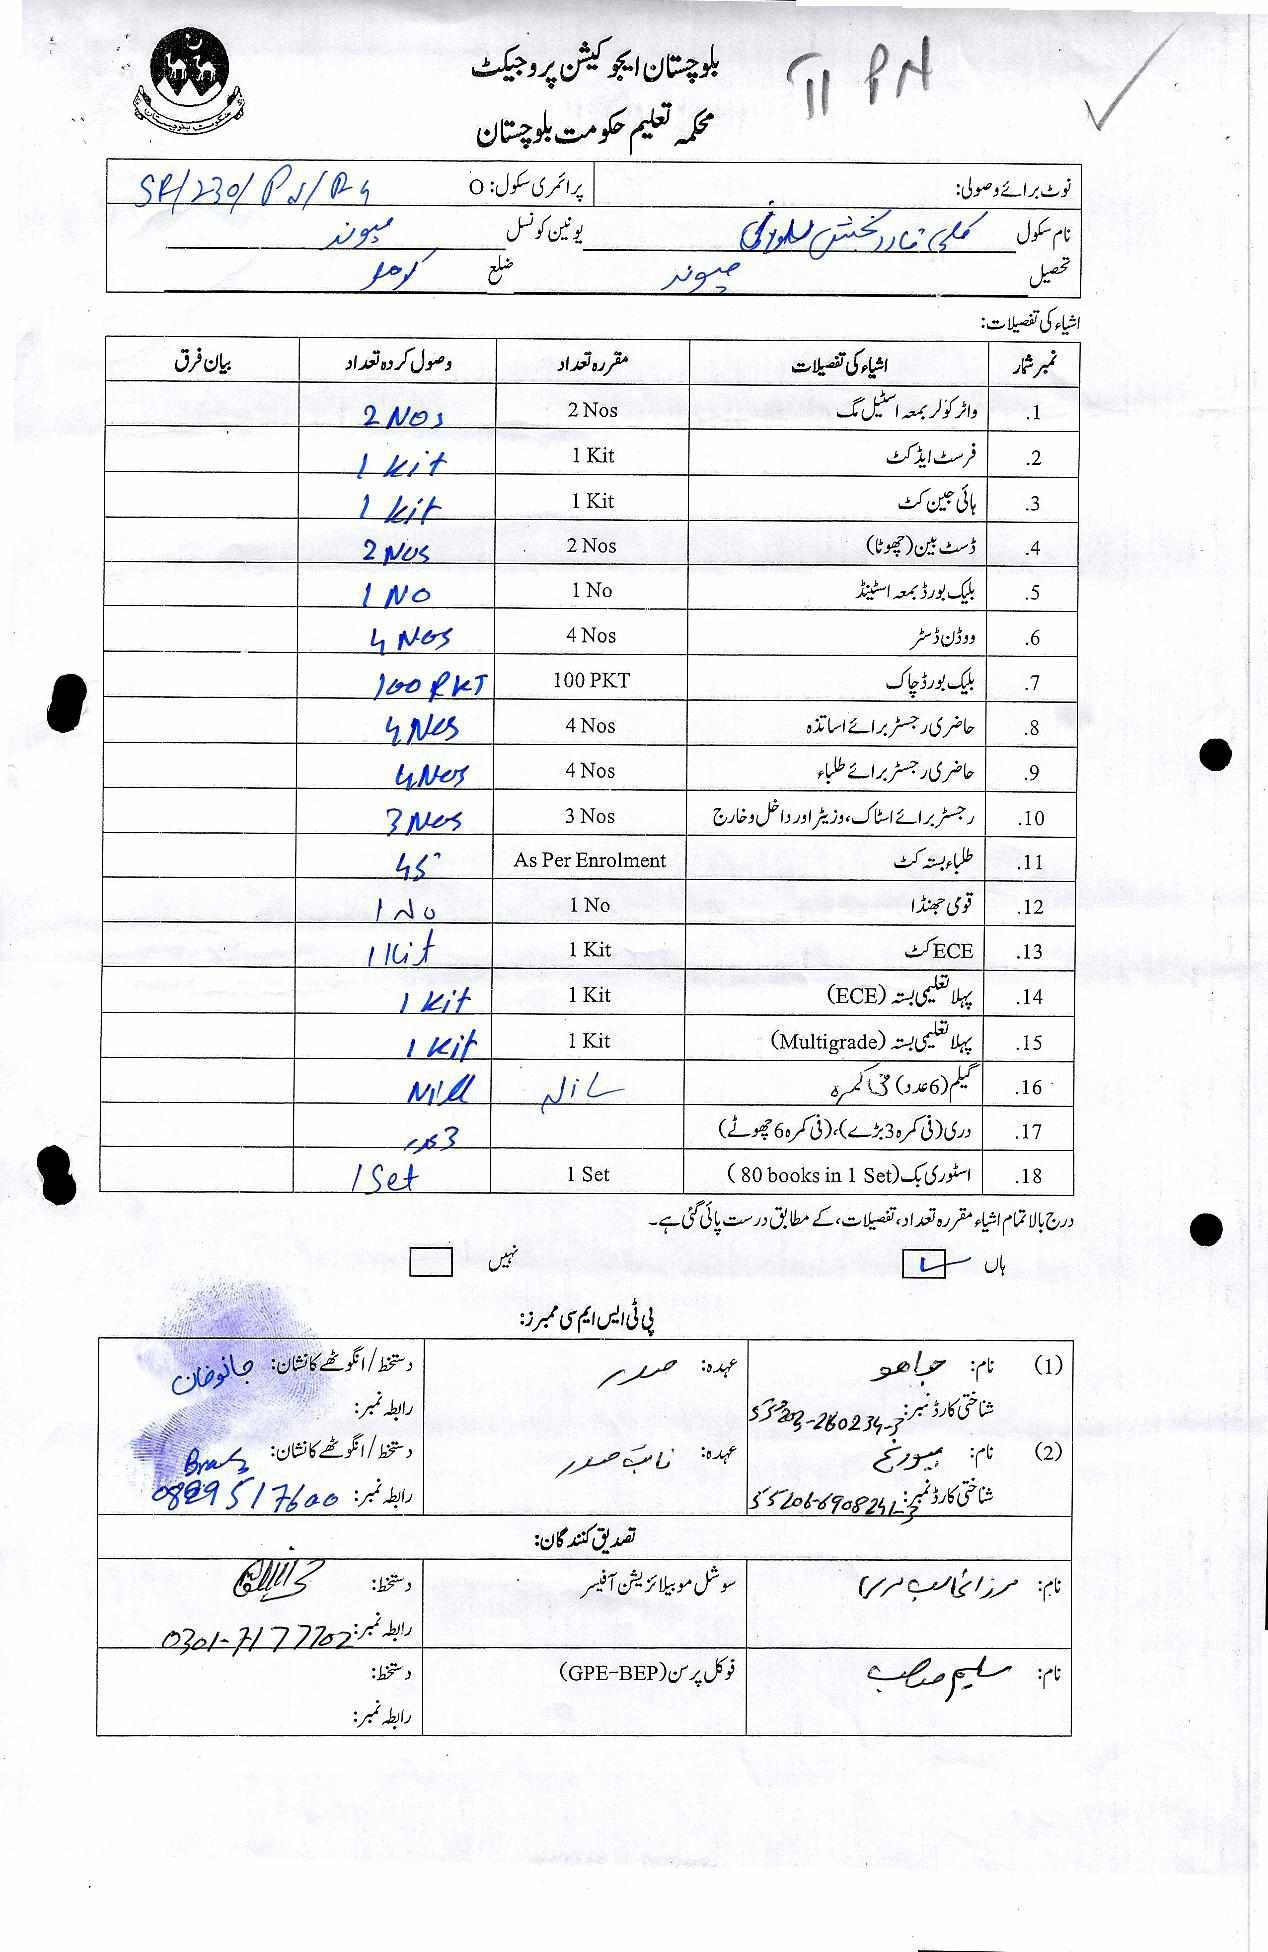 بلوچستان ایجوکیشن پروجیکٹ
محکمہ تعلیم حکومت بلوچستان
نوٹ برائے وصولی: پرائمری سکول: O
نام سکول کلی قادر بخش یونین کونسل میوند
تحصیل میوند ضلع کوہلو
اشیاء کی تفصیلات:
نمبر شمار اشیاء کی تفصیلات مقررہ تعداد وصول کردہ تعداد بیان فرق
1. واٹر کولر بمعہ اسٹیل مگ 2 Nos 2 Nos
2. فرسٹ ایڈ کٹ 1 Kit 1 Kit
3. ہائی جین کٹ 1 Kit 1 Kit
4. ڈسٹ بین (چھوٹا) 2 Nos 2 Nos
5. بلیک بورڈ بمعہ اسٹینڈ 1 No 1 No
6. ووڈن ڈسٹر 4 Nos 4 Nos
7. بلیک بورڈ چاک 100 PKT 100 PKT
8. حاضری رجسٹر برائے اساتذہ 4 Nos 4 Nos
9. حاضری رجسٹر برائے طلباء 4 Nos 4 Nos
10. رجسٹر برائے اسٹاک، وزیٹر اور داخل و خارج 3 Nos 3 Nos
11. طلباء بستہ کٹ As Per Enrolment 45
12. قومی جھنڈا 1 No 1 No
13. ECE کٹ 1 Kit 1 Kit
14. پہلا تعلیمی بستہ (ECE) 1 Kit 1 Kit
15. پہلا تعلیمی بستہ (Multigrade) 1 Kit 1 Kit
16. گیلم (6 عدد) کمرہ NIL Nill
17. دری (فی کمرہ 3 بڑے)، (فی کمرہ 6 چھوٹے) 3 عدد
18. اسٹوری بک (80 books in 1 Set) 1 Set 1 Set
درج بالا تمام اشیاء مقررہ تعداد، تفصیلات، کے مطابق درست پائی گئی ہے۔
ہاں نہیں
پی ٹی ایس ایم سی ممبرز:
(1) نام: عہدہ: صدر دستخط/انگوٹھے کا نشان: جانو خان
شناختی کارڈ نمبر: رابطہ نمبر:
(2) نام: عہدہ: نائب صدر دستخط/انگوٹھے کا نشان:
شناختی کارڈ نمبر: رابطہ نمبر:
تصدیق کنندگان:
نام: سوشل موبیلائزیشن آفیسر دستخط:
رابطہ نمبر: 0301-7177702
نام: سلیم صاحب فوکل پرسن (GPE-BEP) دستخط:
رابطہ نمبر: